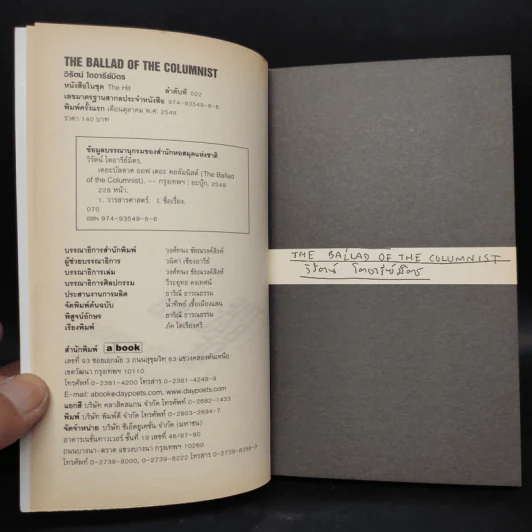 THE BALLAD OF THE COLUMNIST
วิรัตน์ โตอารีย์มิตร
หนังสือในชุด The Hit ลำดับที่ 022
เลขมาตรฐานสากลประจำหนังสือ 974-93549-6-6
พิมพ์ครั้งแรก เดือนตุลาคม พ.ศ. 2548
ราคา 140 บาท
ข้อมูลบรรณานุกรมของสำนักหอสมุดแห่งชาติ
วิรัตน์ โตอารีย์มิตร.
เดอะบัลลาด ออฟ เดอะ คอลัมนิสต์ (The Ballad
of the Columnist). -- กรุงเทพฯ : อะบุ๊ก, 2548
228 หน้า.
1. วารสารศาสตร์. I. ชื่อเรื่อง.
070
ISBN 974-93549-6-6
บรรณาธิการสำนักพิมพ์ วงศ์ทนง ชัยณรงค์สิงห์
ผู้ช่วยบรรณาธิการ วนิดา เชียงอารีย์
บรรณาธิการเล่ม วงศ์ทนง ชัยณรงค์สิงห์
บรรณาธิการศิลปกรรม วีระยุทธ คงเทศน์
ประสานงานการผลิต ธาริณี ธารณธรรม
จัดพิมพ์ต้นฉบับ น้ำทิพย์ เชื้อเมืองแสน
พิสูจน์อักษร ธาริณี ธารณธรรม
เรียงพิมพ์ ภัค โตเรืองศรี
สำนักพิมพ์ a book
เลขที่ 93 ซอยเอกมัย 3 ถนนสุขุมวิท 63 แขวงคลองตันเหนือ
เขตวัฒนา กรุงเทพฯ 10110
โทรศัพท์ 0-2381-4200 โทรสาร 0-2381-4248-9
E-mail: abook@daypoets.com, www.daypoets.com
แยกสี บริษัท คลาสิคสแกน จำกัด โทรศัพท์ 0-2682-1433
พิมพ์ บริษัท พิมพ์ดี จำกัด โทรศัพท์ 0-2803-2694-7
จัดจำหน่าย บริษัท ซีเอ็ดยูเคชั่น จำกัด (มหาชน)
อาคารเนชั่นทาวเวอร์ ชั้นที่ 19 เลขที่ 46/87-90
ถนนบางนา-ตราด แขวงบางนา กรุงเทพฯ 10260
โทรศัพท์ 0-2739-8000, 0-2739-8222 โทรสาร
THE BALLAD OF THE COLUMNIST
วิรัตน์ โตอารีย์มิตร